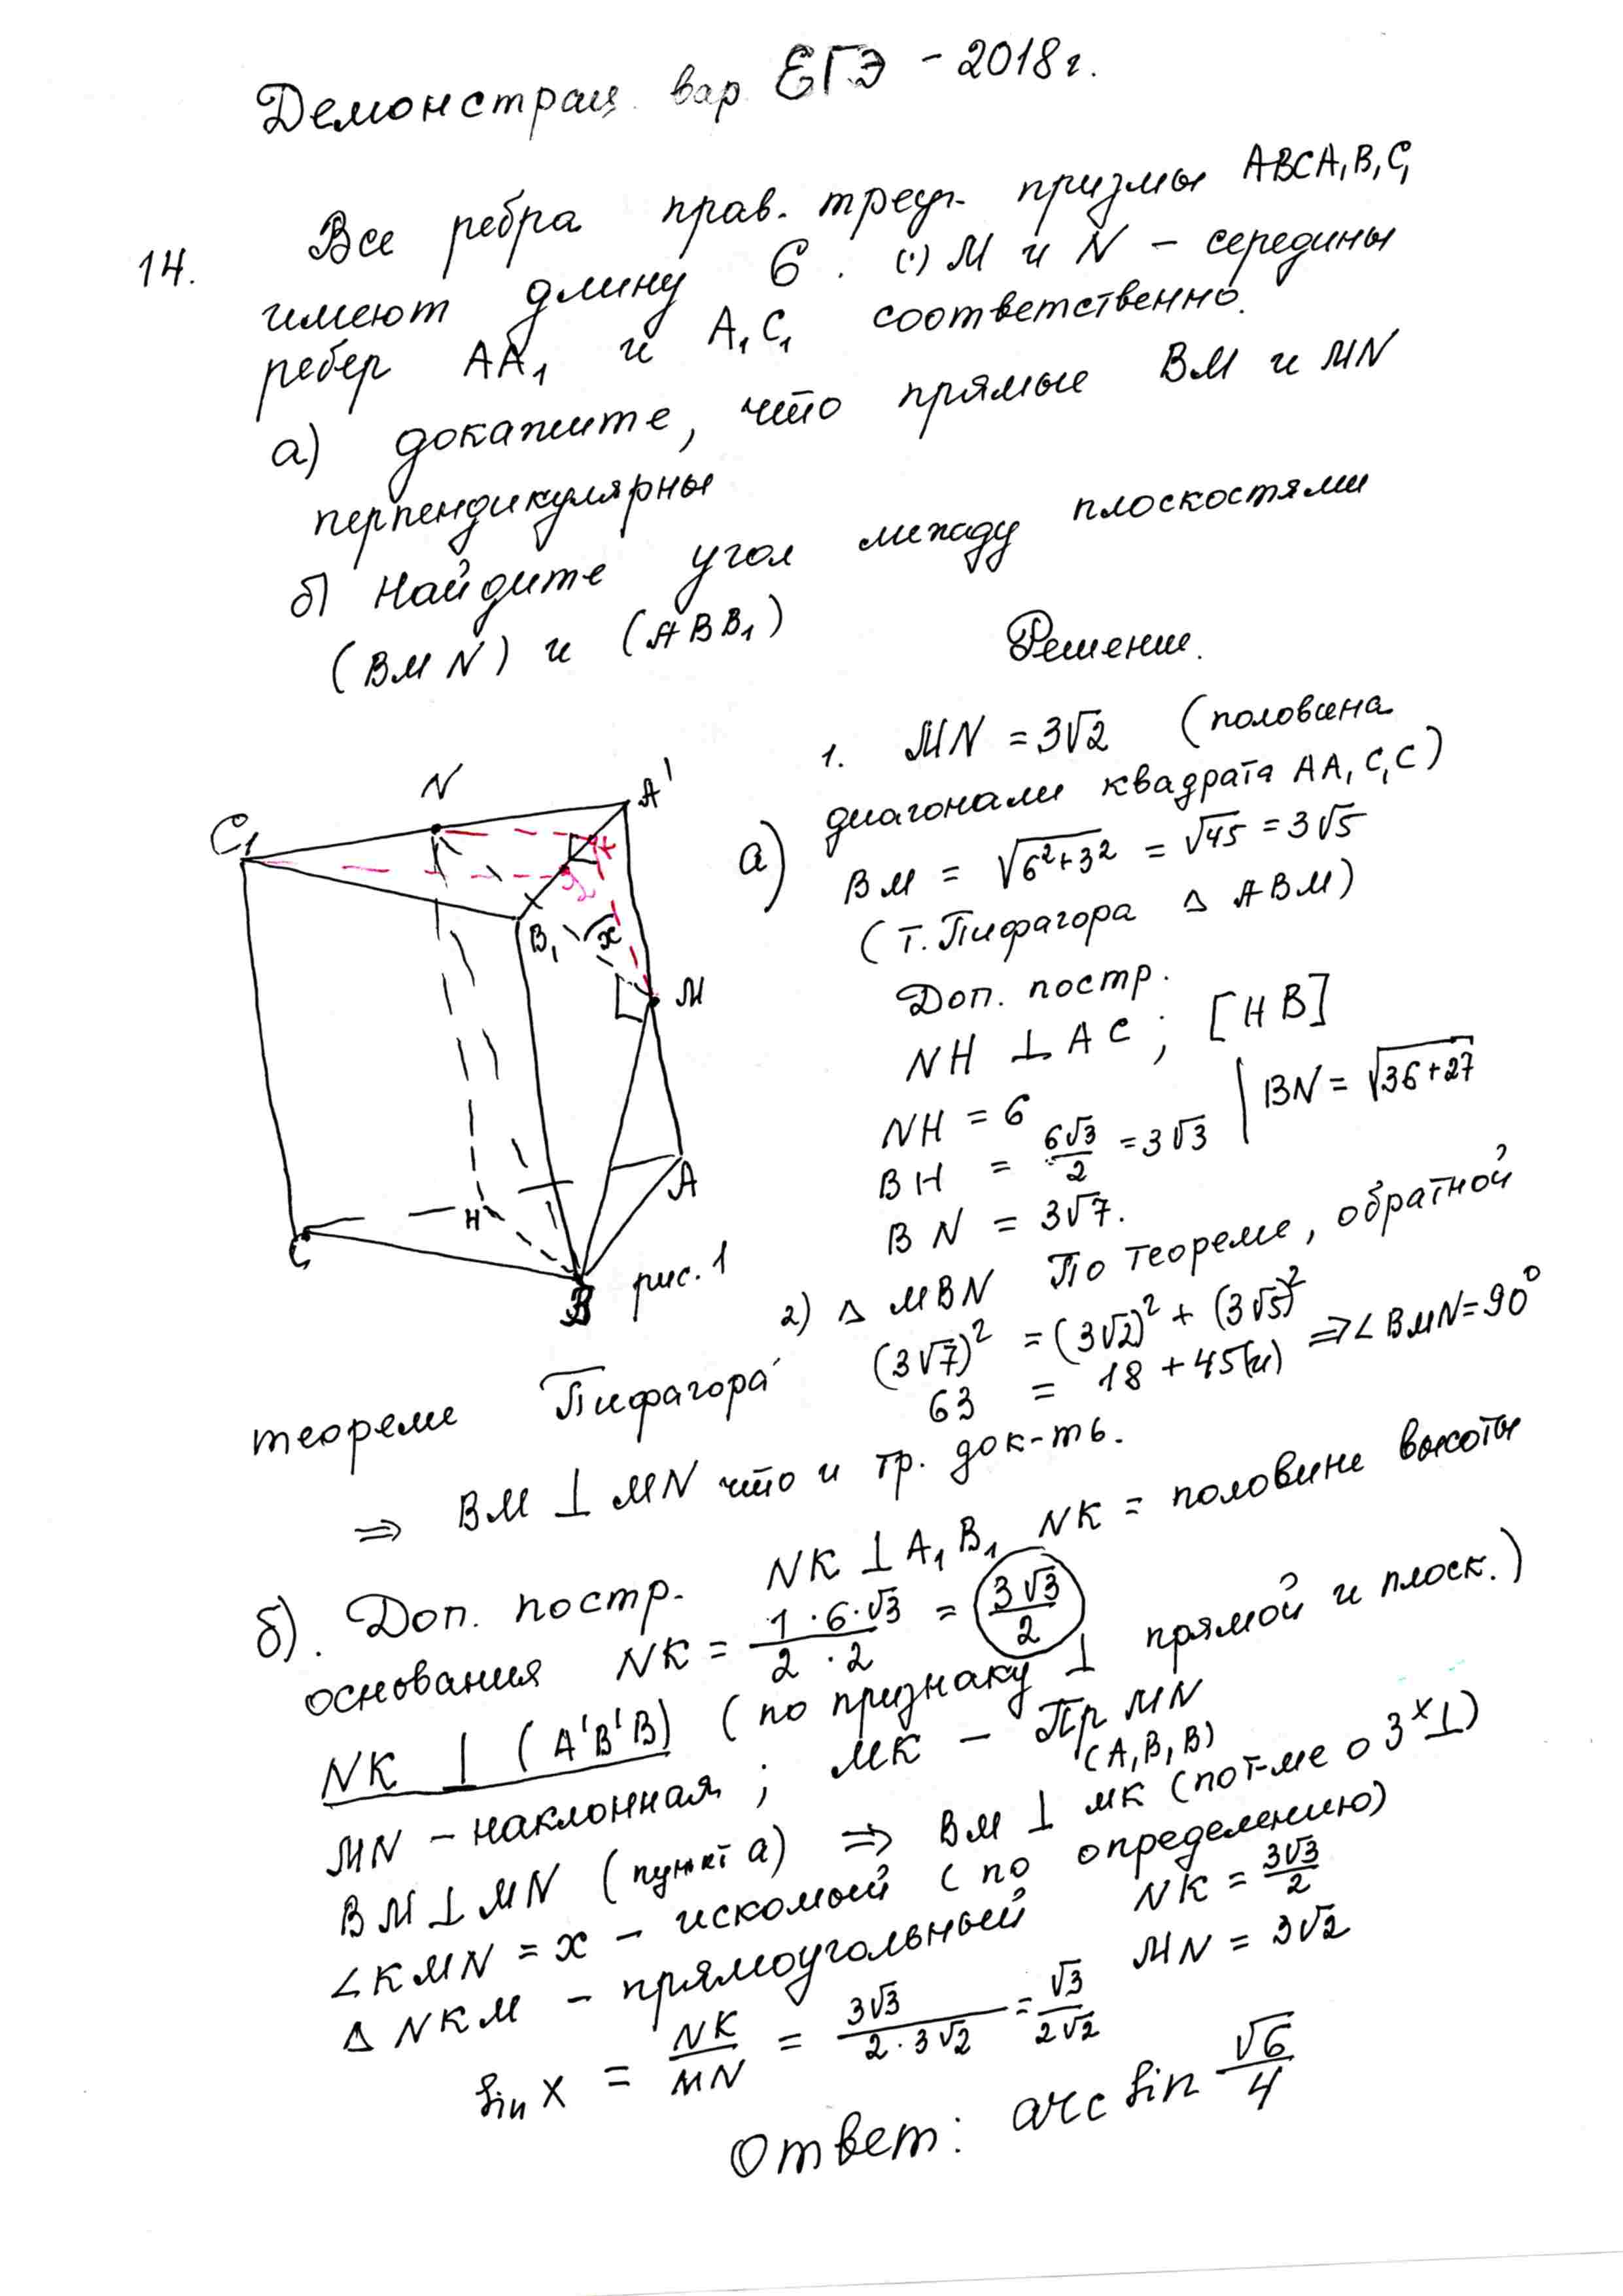 Демонстрац. вар ЕГЭ - 2018г.
14. Все ребра прав. треуг. призмы ABCA₁B₁C₁
имеют длину 6. (·) M и N - середины
ребер AA₁ и A₁C₁ соответственно.
а) докажите, что прямые BM и MN
перпендикулярны
б) Найдите угол между плоскостями
(BMN) и (ABB₁)
Решение.
1. MN = 3√2 (половина
диагонали квадрата AA₁C₁C)
а) BM = √(6²+3²) = √45 = 3√5
(т. Пифагора Δ ABM)
Доп. постр.
NH ⊥ AC ; [HB]
NH = 6
BH = 6√3/2 = 3√3 | BN = √(36+27)
BN = 3√7.
C₁ N A' K B₁ x M H A C B
рис. 1
2) Δ MBN По теореме, обратной
теореме Пифагора (3√7)² = (3√2)² + (3√5)²
63 = 18 + 45(и) ⇒ ∠BMN = 90°
⇒ BM ⊥ MN что и тр. док-ть.
б). Доп. постр. NK ⊥ A₁B₁ NK = половине высоты
основания NK = 1·6·√3/2·2 = 3√3/2
NK ⊥ (A'B'B) (по признаку ⊥ прямой и плоск.)
MN - наклонная ; MK - Пр MN (A₁B₁B)
BM ⊥ MN (пункт а) ⇒ BM ⊥ MK (по т-ме о 3ˣ ⊥)
∠KMN = x - искомый (по определению)
Δ NKM - прямоугольный NK = 3√3/2
MN = 3√2
sin x = NK/MN = 3√3/2·3√2 = √3/2√2
Ответ: arcsin √6/4